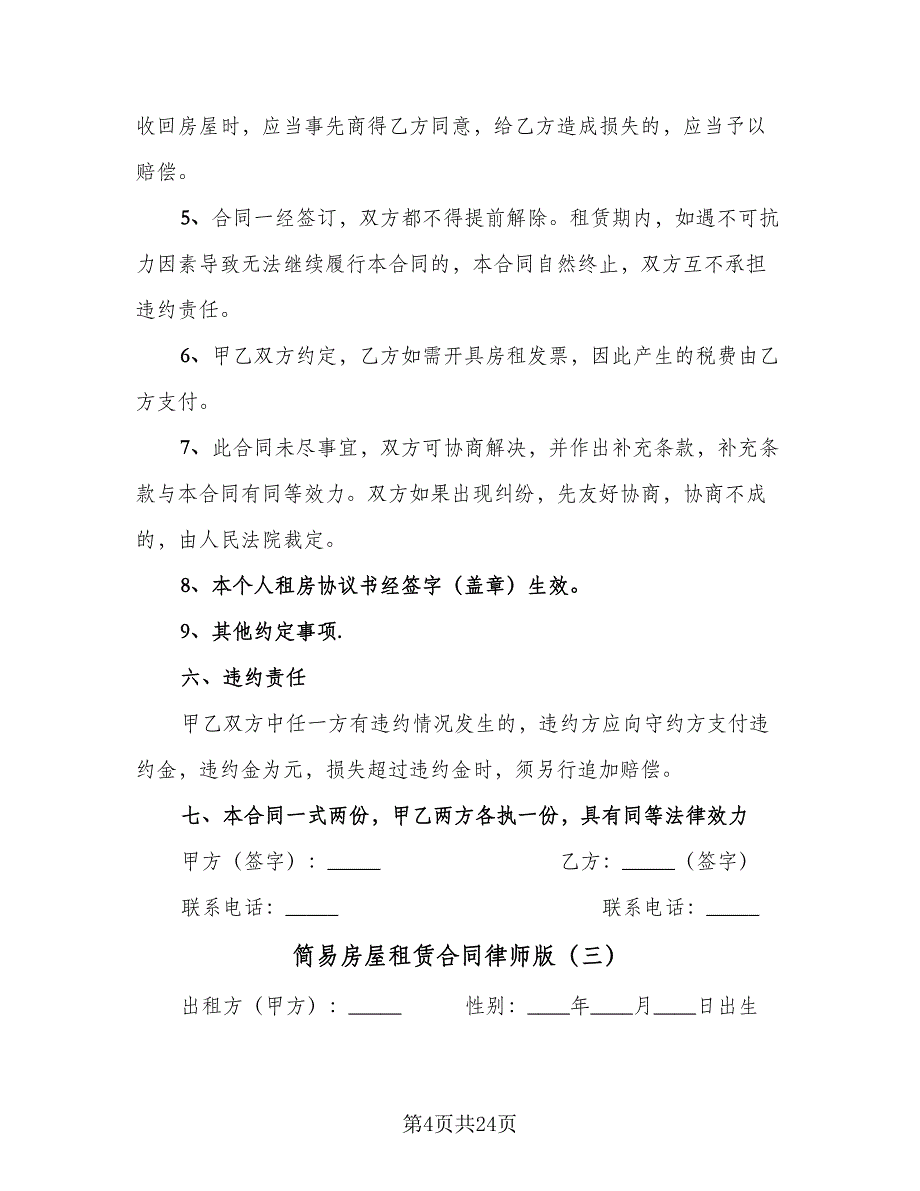 收回房屋时，应当事先商得乙方同意，给乙方造成损失的，应当予以
赔偿。
5、合同一经签订，双方都不得提前解除。租赁期内，如遇不可抗
力因素导致无法继续履行本合同的，本合同自然终止，双方互不承担
违约责任。
6、甲乙双方约定，乙方如需开具房租发票，因此产生的税费由乙
方支付。
7、此合同未尽事宜，双方可协商解决，并作出补充条款，补充条
款与本合同有同等效力。双方如果出现纠纷，先友好协商，协商不成
的，由人民法院裁定。
8、本个人租房协议书经签字（盖章）生效。
9、其他约定事项.
六、违约责任
甲乙双方中任一方有违约情况发生的，违约方应向守约方支付违
约金，违约金为元，损失超过违约金时，须另行追加赔偿。
七、本合同一式两份，甲乙两方各执一份，具有同等法律效力
甲方（签字）：_____ 乙方：_____（签字）
联系电话：_____ 联系电话：_____
简易房屋租赁合同律师版（三）
出租方（甲方）：_____ 性别：____年____月____日出生
第4页共24页